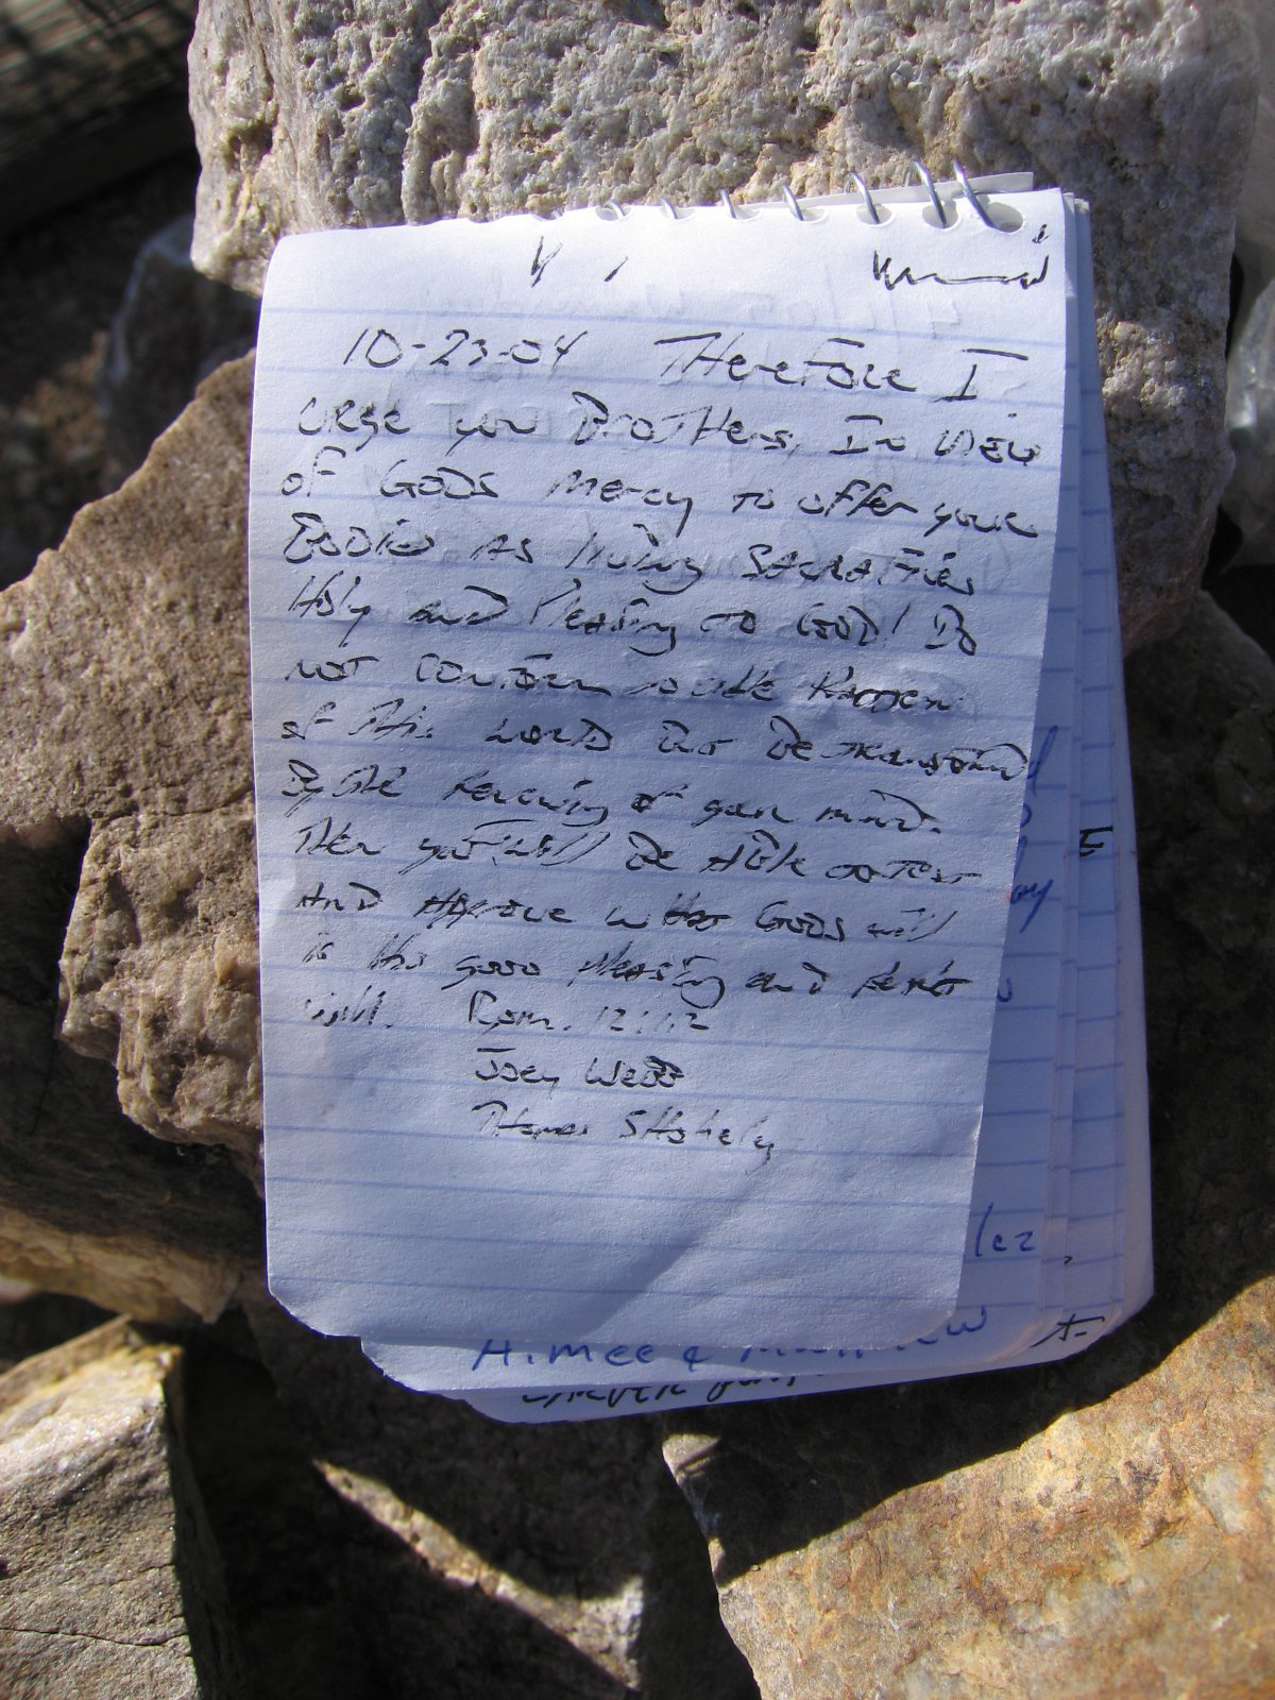 10-23-04 Therefore I
urge you Brothers, In view
of Gods Mercy to offer your
Bodies as living Sacrafies
Holy and Pleasing to GOD! Do
not conform to the Pattern
of this world But Be transformd
By the renewing of your mind.
Then you will Be Able to Test
And Approve what Gods will
is His good pleasing and perfect
will. Rom. 12:1,2
Joey Webb
Thomas
Aimee &